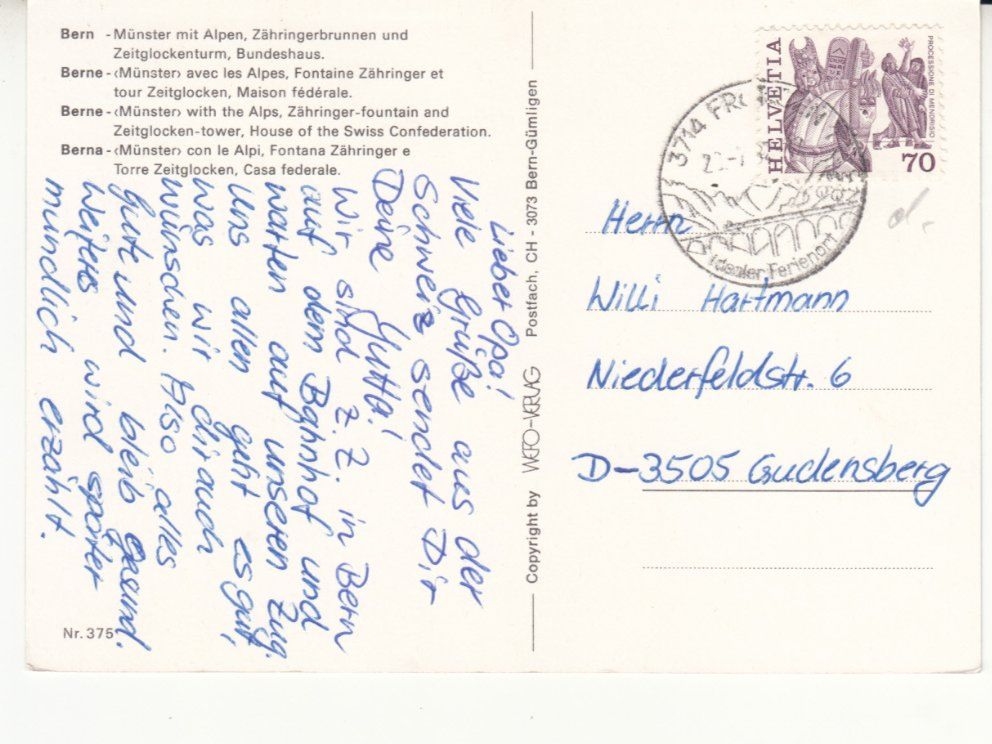 Bern - Münster mit Alpen, Zähringerbrunnen und
Zeitglockenturm, Bundeshaus.
Berne - ‹Münster› avec les Alpes, Fontaine Zähringer et
tour Zeitglocken, Maison fédérale.
Berne - ‹Münster› with the Alps, Zähringer-fountain and
Zeitglocken-tower, House of the Swiss Confederation.
Berna - ‹Münster› con le Alpi, Fontana Zähringer e
Torre Zeitglocken, Casa federale.
Lieber Opa!
Viele Grüße aus der
Schweiz sendet Dir
Deine Jutta!
Wir sind z.Z. in Bern
auf dem Bahnhof und
warten auf unseren Zug.
Uns allen geht es gut,
was wir dir auch
wünschen. Also alles
Gute und bleib gesund.
Weiteres wird später
mündlich erzählt.
Nr. 375
Copyright by WERO-VERLAG Postfach, CH - 3073 Bern-Gümligen
HELVETIA
PROCESSIONE DI MENDRISIO
70
3714
Idealer Ferienort
Herrn
Willi Hartmann
Niederfeldstr. 6
D-3505 Gudensberg